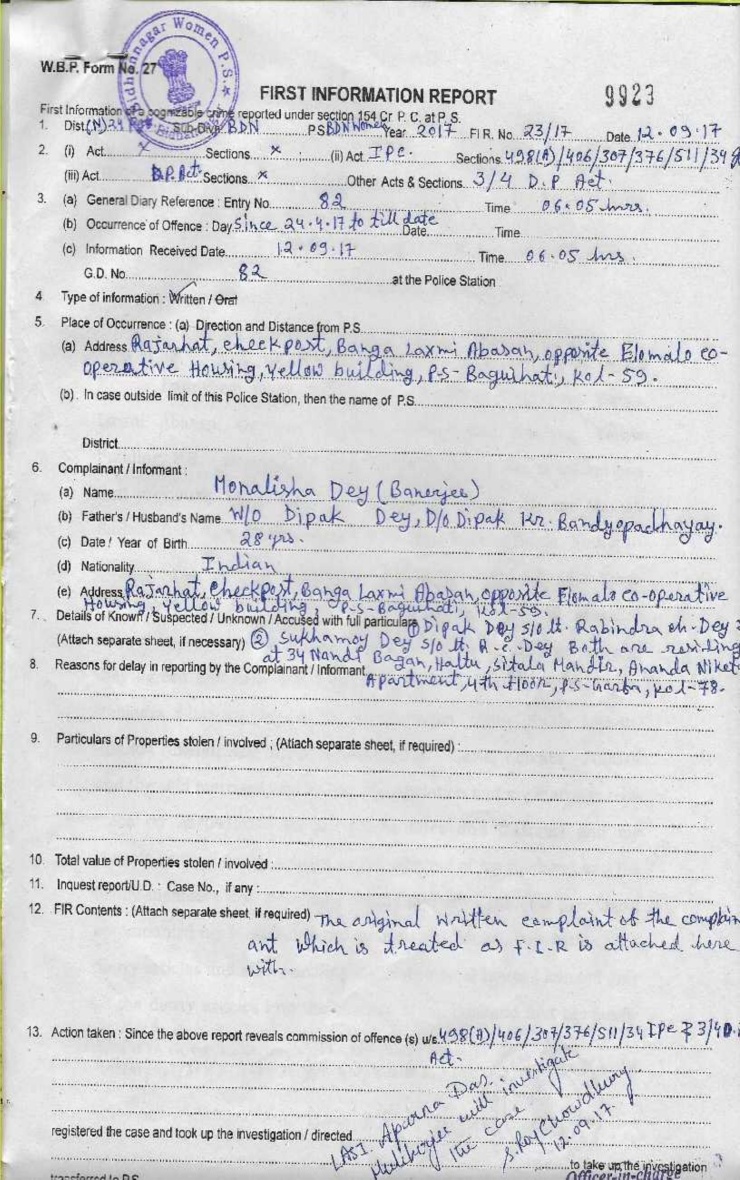 Bidhannagar Women P.S.
W.B.P. Form No. 27
FIRST INFORMATION REPORT 9923
First Information of a cognizable crime reported under section 154 Cr. P. C. at P. S.
1. Dist (N) 24 Sub-Divn. BDN P.S BDN Women Year 2017 FIR. No. 23/17 Date 12.09.17
2. (i) Act x Sections x (ii) Act I.P.C. Sections 498(A)/406/307/376/511/34
(iii) Act D.P. Act. Sections x Other Acts & Sections 3/4 D.P Act.
3. (a) General Diary Reference : Entry No. 82 Time 06.05 hrs.
(b) Occurrence of Offence : Day Since 24.4.17 to till date Date Time
(c) Information Received Date 12.09.17 Time 06.05 hrs.
G.D. No. 82 at the Police Station
4 Type of information : Written / Oral
5. Place of Occurrence : (a) Direction and Distance from P.S.
(a) Address Rajarhat, checkpost, Banga Laxmi Abasan, opposite Elomalo co-
operative Housing, yellow building, P.S- Baguihati, Kol-59.
(b). In case outside limit of this Police Station, then the name of P.S.
District
6. Complainant / Informant :
(a) Name Monalisha Dey (Banerjee)
(b) Father's / Husband's Name W/O Dipak Dey, D/O Dipak Kr. Bandyopadhayay.
(c) Date / Year of Birth 28 yrs.
(d) Nationality Indian
(e) Address Rajarhat, Checkpost, Banga Laxmi Abasan, opposite Elomalo co-operative
Housing, yellow building, P-S-Baguihati, Kol-59.
7. Details of Known / Suspected / Unknown / Accused with full particulars ① Dipak Dey s/o lt. Rabindra ch. Dey
(Attach separate sheet, if necessary) ② Sukhamoy Dey s/o lt. R.c. Dey Both are residing
at 34 Nandi Bagan, Haltu, Sitala Mandir, Ananda Niket
8. Reasons for delay in reporting by the Complainant / Informant Apartment, 4th floor, P.S-Garfa, Kol-78.
9. Particulars of Properties stolen / involved ; (Attach separate sheet, if required) :
10. Total value of Properties stolen / involved :
11. Inquest report/U.D. : Case No., if any :
12. FIR Contents : (Attach separate sheet, if required) The original written complaint of the complain
ant which is treated as F.I.R is attached here
with.
13. Action taken : Since the above report reveals commission of offence (s) u/s 498(A)/406/307/376/511/34 IPC & 3/4 D.
Act.
registered the case and took up the investigation / directed LASI. Aparna Das.
Mukherjee will investigate
the case
S. Roy Chowdhury
12.09.17.
to take up the investigation
transferred to P.S. Officer-in-charge